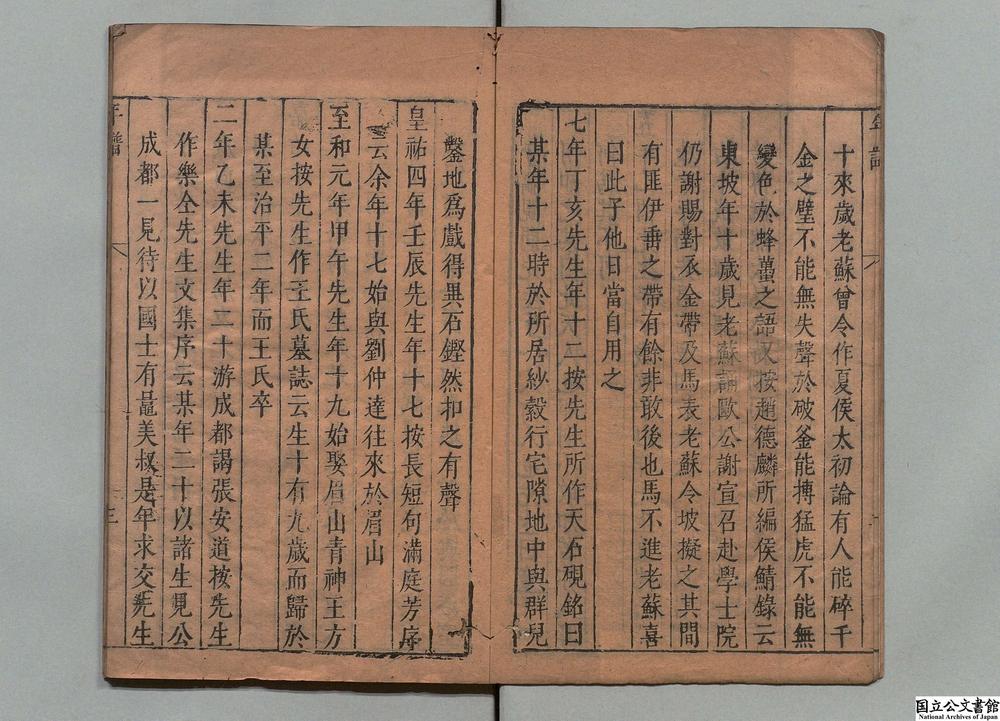 年譜
十來歲老蘇曾令作夏侯太初論有人能碎千
金之璧不能無失聲於破釜能搏猛虎不能無
變色於蜂蠆之語又按趙德麟所編侯鯖錄云
東坡年十歲見老蘇誦歐公謝宣召赴學士院
仍謝賜對衣金帶及馬表老蘇令坡擬之其間
有匪伊垂之帶有餘非敢後也馬不進老蘇喜
曰此子他日當自用之
七年丁亥先生年十二按先生所作天石硯銘曰
某年十二時於所居紗縠行宅隙地中與群兒
鑿地爲戲得異石鏗然扣之有聲
皇祐四年壬辰先生年十七按長短句滿庭芳序
云余年十七始與劉仲達往來於眉山
至和元年甲午先生年十九始娶眉山青神王方
女按先生作王氏墓誌云生十有九歲而歸於
某至治平二年而王氏卒
二年乙未先生年二十游成都謁張安道按先生
作樂全先生文集序云某年二十以諸生見公
成都一見待以國士有晁美叔是年求交先生
年譜
三
国立公文書館
National Archives of Japan